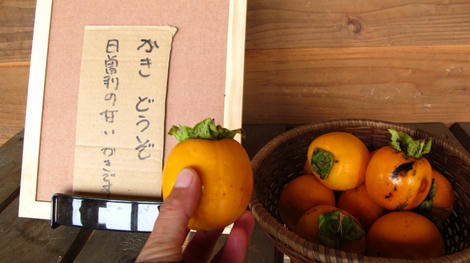 かき どうぞ
日曽利の甘いかきです